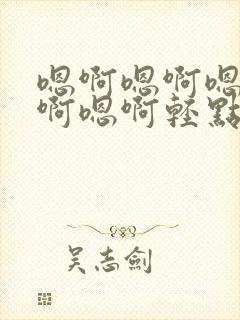 嗯啊嗯啊嗯
啊嗯啊轻點
吴志劍